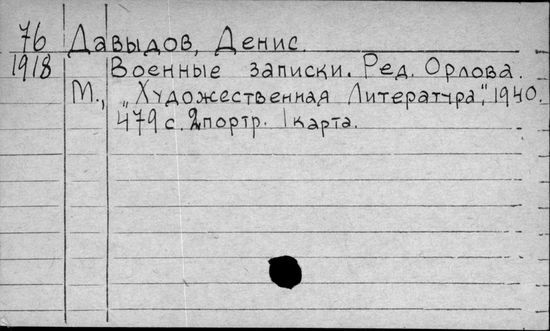 76 Давыдов, Денис.
1918 Военные записки. Ред. Орлова.
М., „Художественная Литература", 1940.
479 с. 2 портр. 1 карта.